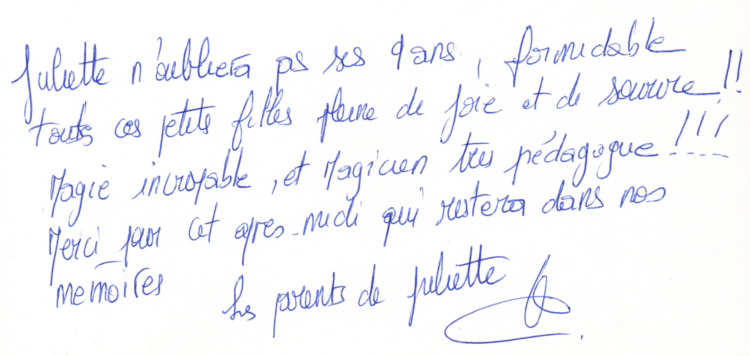 Juliette n'oubliera pas ses 9 ans, formidable
toutes ces petites filles pleine de joie et de sourire !!
Magie incroyable, et Magicien très pédagogue !!!
Merci pour cet après-midi qui restera dans nos
mémoires
Les parents de Juliette